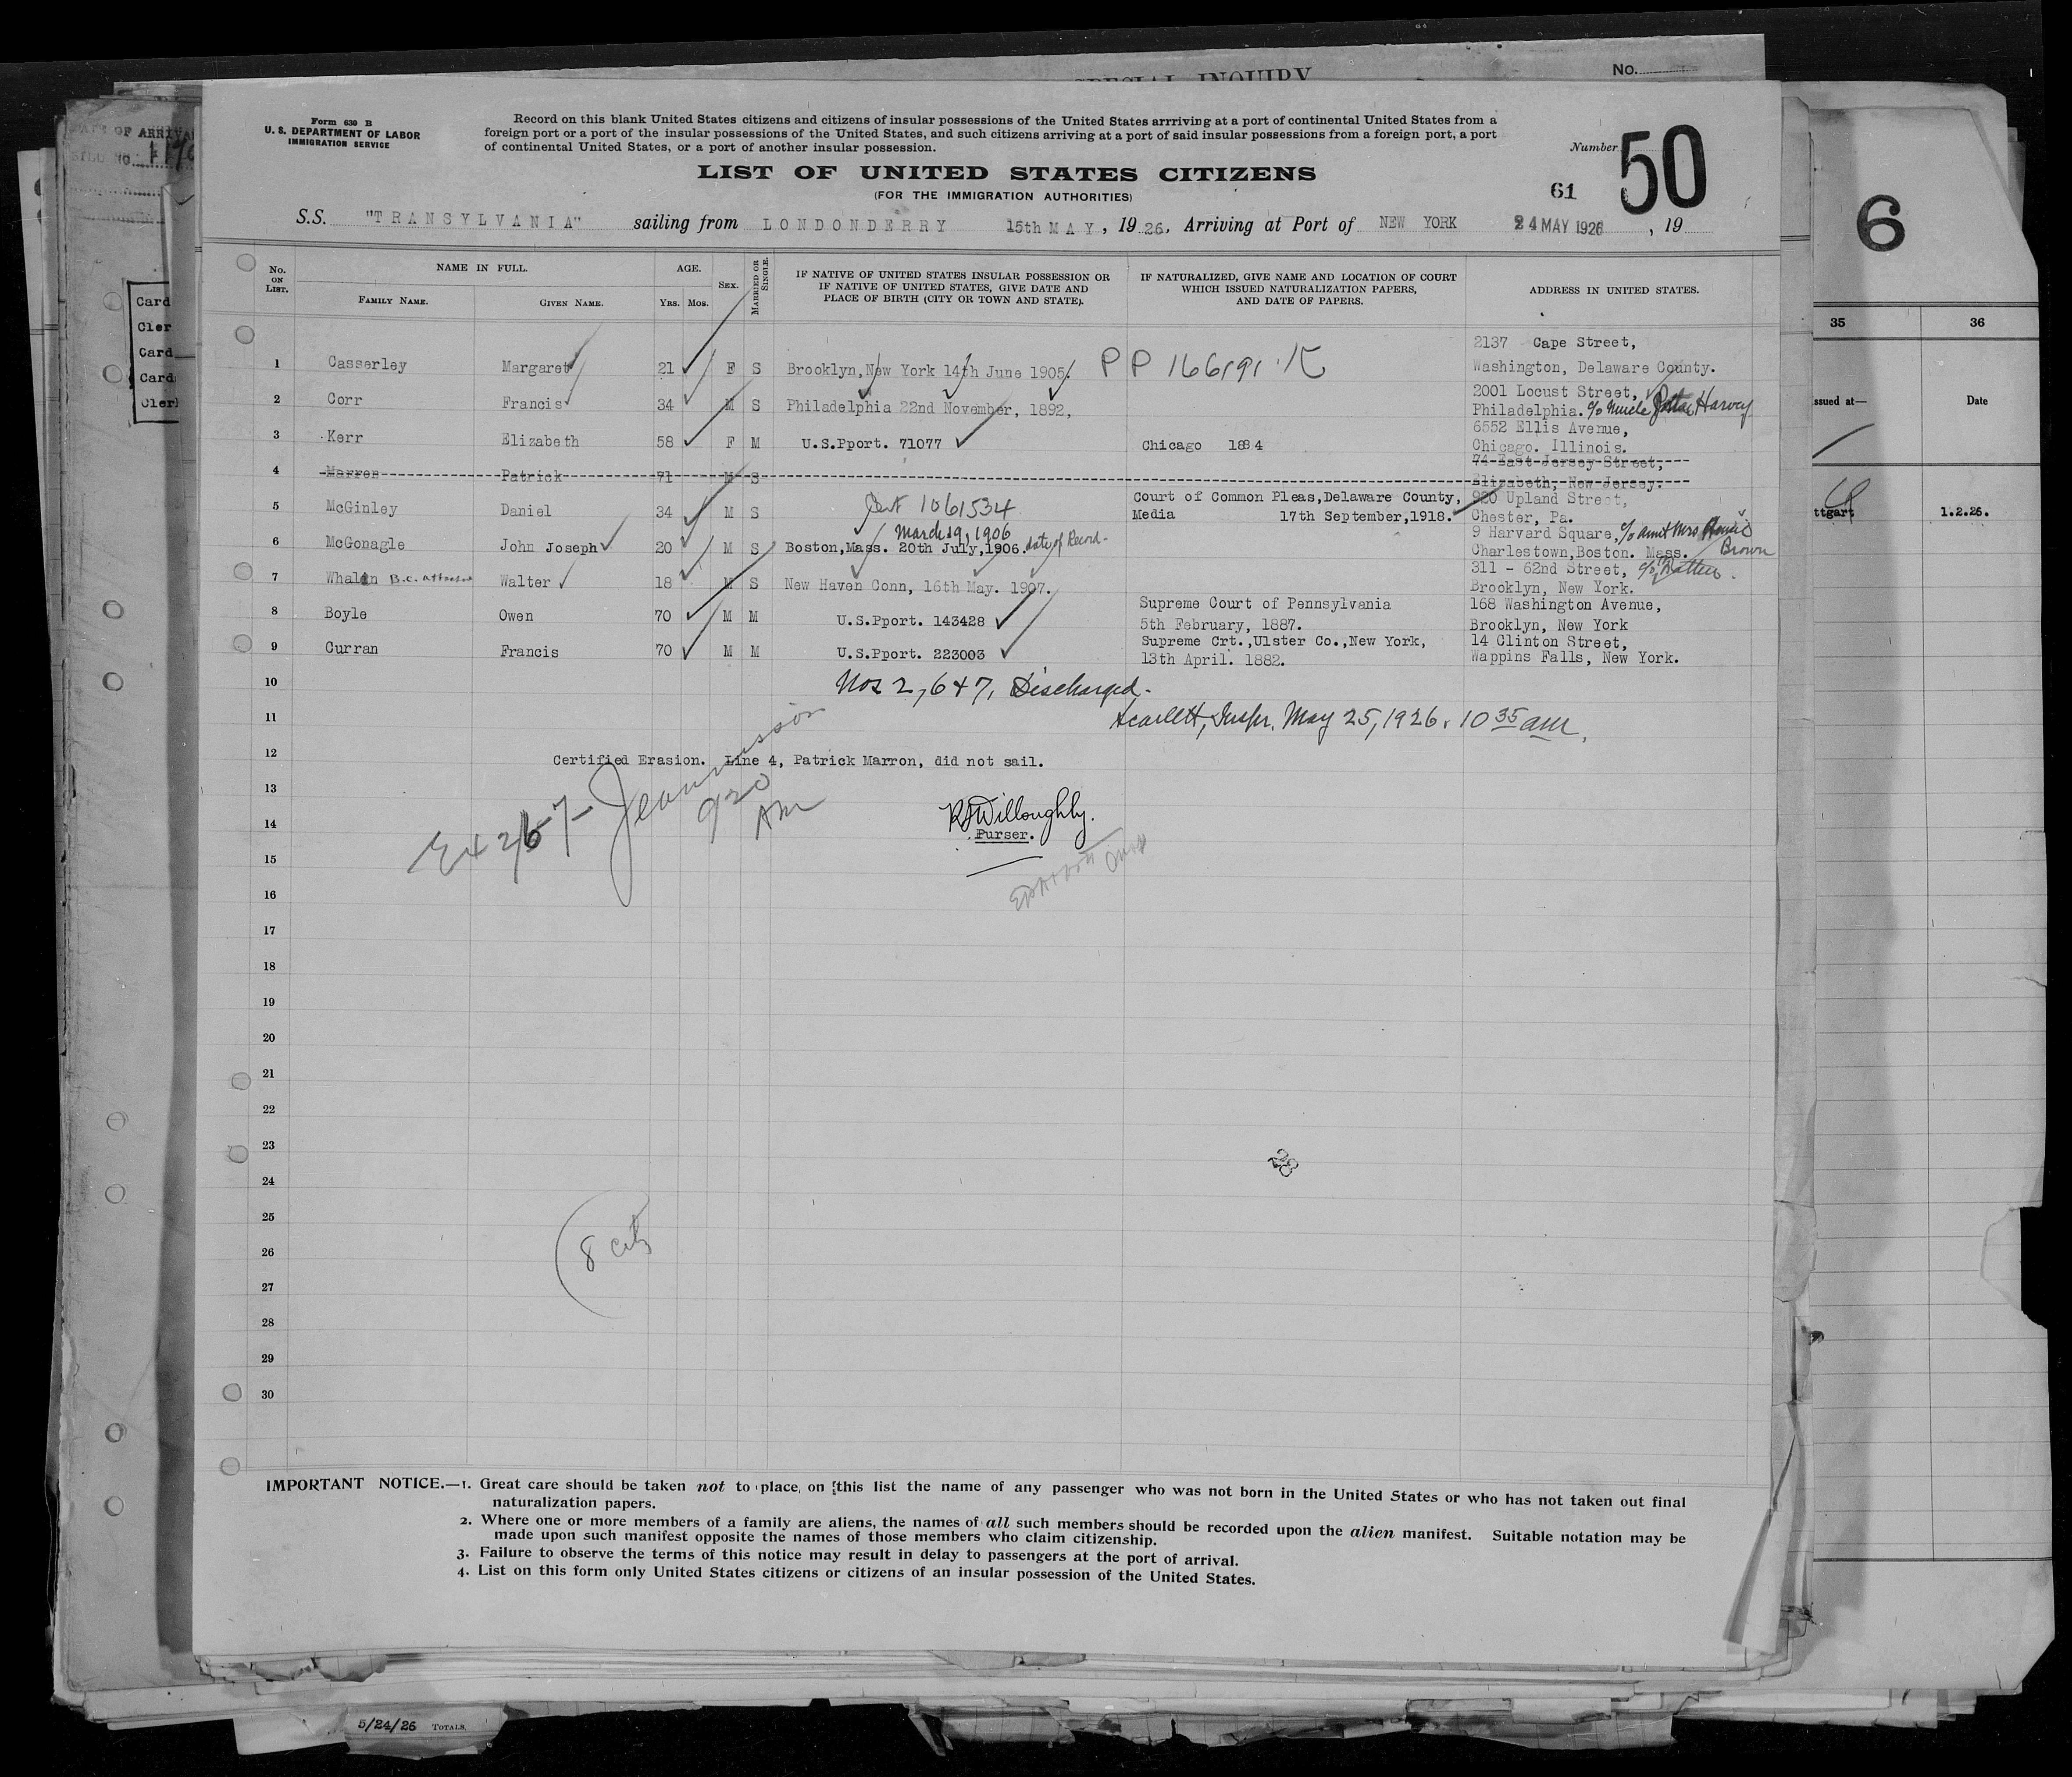 SPECIAL INQUIRY
No.
Form 630 B
U. S. DEPARTMENT OF LABOR
IMMIGRATION SERVICE
Record on this blank United States citizens and citizens of insular possessions of the United States arrriving at a port of continental United States from a
foreign port or a port of the insular possessions of the United States, and such citizens arriving at a port of said insular possessions from a foreign port, a port
of continental United States, or a port of another insular possession.
Number 50
LIST OF UNITED STATES CITIZENS
(FOR THE IMMIGRATION AUTHORITIES)
61
S.S. "TRANSYLVANIA" sailing from LONDONDERRY 15th MAY, 1926, Arriving at Port of NEW YORK 24 MAY 1926, 19
No. ON LIST.
NAME IN FULL.
FAMILY NAME.
GIVEN NAME.
AGE.
Yrs. Mos.
SEX.
MARRIED OR SINGLE.
IF NATIVE OF UNITED STATES INSULAR POSSESSION OR
IF NATIVE OF UNITED STATES, GIVE DATE AND
PLACE OF BIRTH (CITY OR TOWN AND STATE).
IF NATURALIZED, GIVE NAME AND LOCATION OF COURT
WHICH ISSUED NATURALIZATION PAPERS,
AND DATE OF PAPERS.
ADDRESS IN UNITED STATES.
2137 Cape Street,
1 Casserley Margaret 21 F S Brooklyn, New York 14th June 1905. PP Washington, Delaware County.
2001 Locust Street,
2 Corr Francis 34 M S Philadelphia 22nd November, 1892, Philadelphia. c/o Uncle Harvey
6552 Ellis Avenue,
3 Kerr Elizabeth 58 F M U.S.Pport. 71077 Chicago 1884 Chicago. Illinois.
74 East Jersey Street,
4 Marren Patrick 71 M S Elizabeth, New Jersey.
Cert 1061534 Court of Common Pleas, Delaware County, 920 Upland Street,
5 McGinley Daniel 34 M S Media 17th September, 1918. Chester, Pa.
March 19, 1906 9 Harvard Square, c/o aunt Mrs
6 McGonagle John Joseph 20 M S Boston, Mass. 20th July, 1906. date of Record- Charlestown, Boston. Mass. Brown
311 - 62nd Street, c/o
7 Whalen B.C. attached Walter 18 M S New Haven Conn, 16th May. 1907. Brooklyn, New York.
Supreme Court of Pennsylvania 168 Washington Avenue,
8 Boyle Owen 70 M M U.S.Pport. 143428 5th February, 1887. Brooklyn, New York
Supreme Crt., Ulster Co., New York, 14 Clinton Street,
9 Curran Francis 70 M M U.S.Pport. 223003 13th April. 1882. Wappins Falls, New York.
10 Nos 2, 6 & 7, Discharged.
11 Scarlett, Inspr. May 25, 1926. 10 35 am.
12 Certified Erasion. Line 4, Patrick Marron, did not sail.
13
920
AM
14 Willoughby.
Purser.
15
16
17
18
19
20
21
22
23
28
24
25
26 8 cit
27
28
29
30
IMPORTANT NOTICE.—1. Great care should be taken not to place on this list the name of any passenger who was not born in the United States or who has not taken out final
naturalization papers.
2. Where one or more members of a family are aliens, the names of all such members should be recorded upon the alien manifest. Suitable notation may be
made upon such manifest opposite the names of those members who claim citizenship.
3. Failure to observe the terms of this notice may result in delay to passengers at the port of arrival.
4. List on this form only United States citizens or citizens of an insular possession of the United States.
Card
Cler
Card
Card
Cler
6
35 36
ssued at— Date
ttgart 1.2.26.
5/24/26 TOTALS.